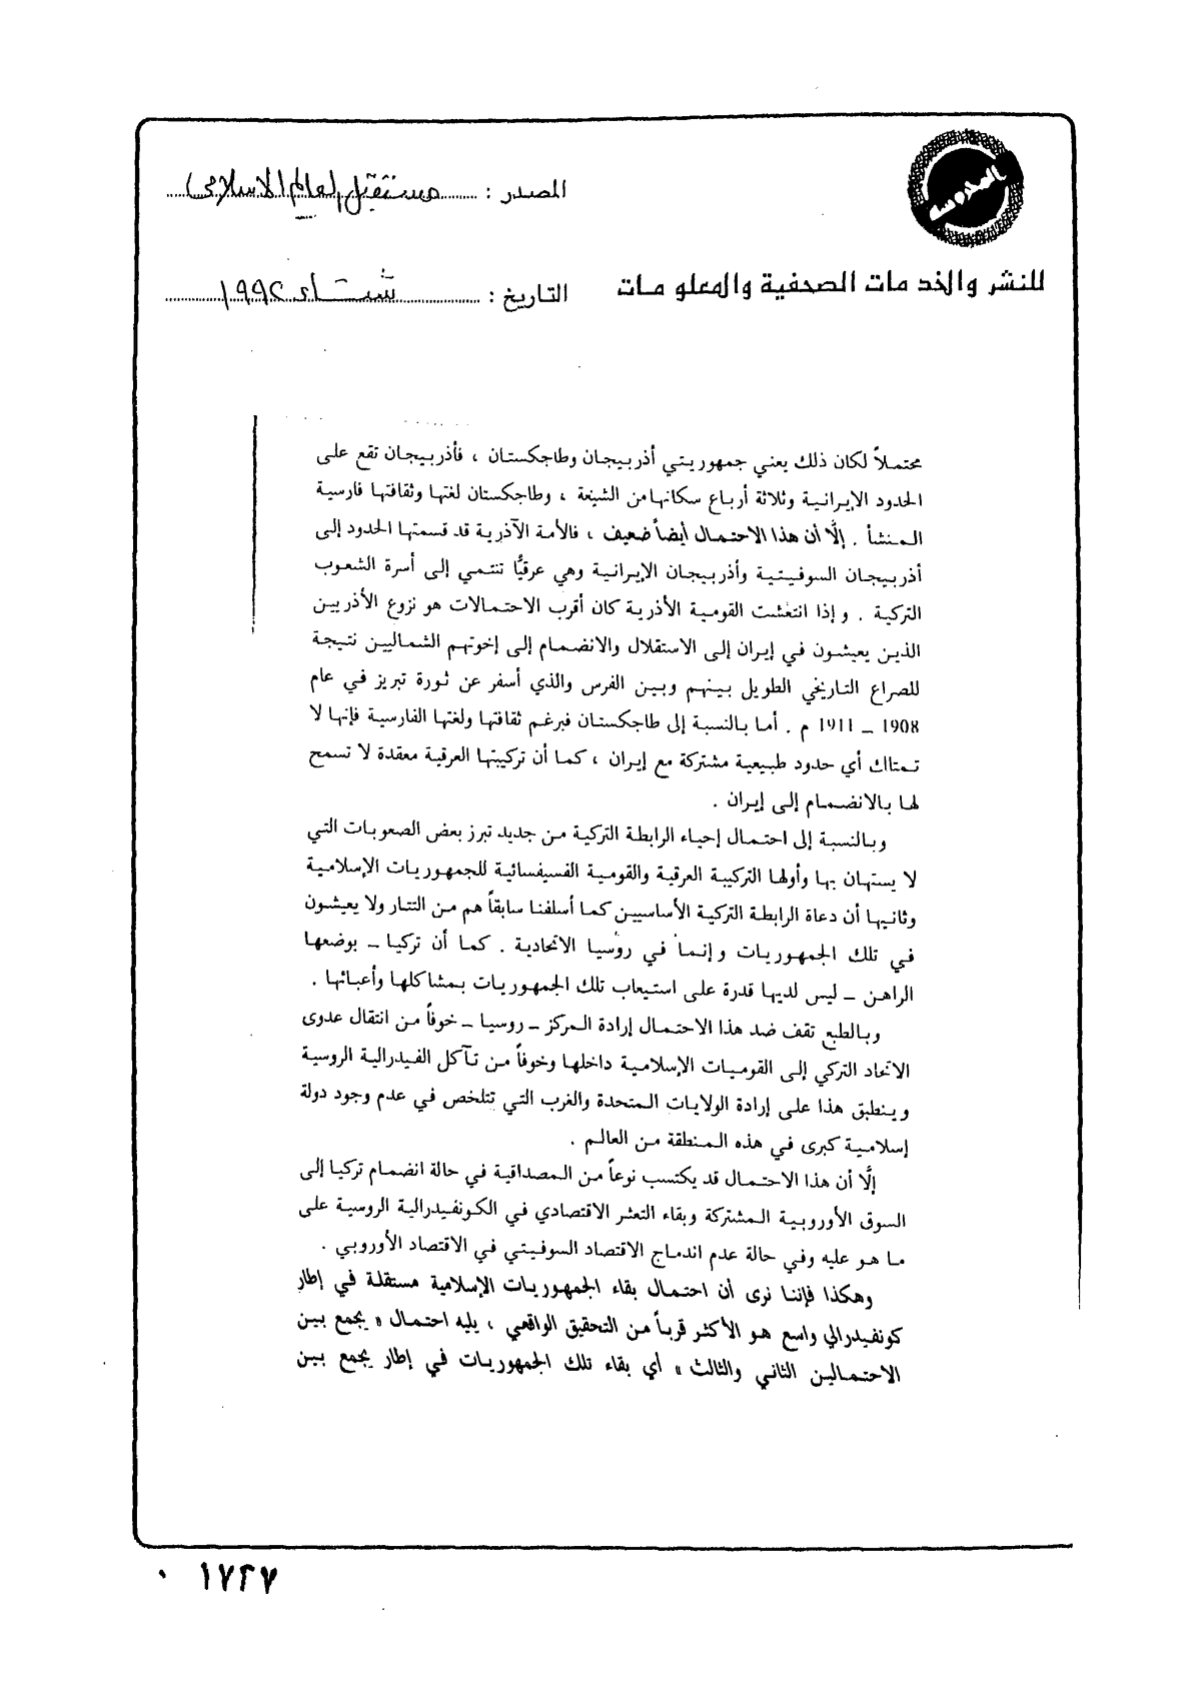 المحروسة
المصدر : مستقبل العالم الاسلامى
للنشر والخد مات الصحفية والمعلو مات
التاريخ : شتاء ١٩٩٢
محتملاً لكان ذلك يعني جمهوريتي أذربيجان وطاجكستان ، فأذربيجان تقع على
الحدود الإيرانية وثلاثة أرباع سكانها من الشيعة ، وطاجكستان لغتها وثقافتها فارسية
المنشأ . إلَّا أن هذا الاحتمال أيضاً ضعيف ، فالأمة الآذرية قد قسمتها الحدود إلى
أذربيجان السوفيتية وأذربيجان الإيرانية وهي عرقيًّا تنتمي إلى أسرة الشعوب
التركية . وإذا انتعشت القومية الأذرية كان أقرب الاحتمالات هو نزوع الأذريين
الذين يعيشون في إيران إلى الاستقلال والانضمام إلى إخوتهم الشماليين نتيجة
للصراع التاريخي الطويل بينهم وبين الفرس والذي أسفر عن ثورة تبريز في عام
1908 ــ 1911 م . أما بالنسبة إلى طاجكستان فبرغم ثقافتها ولغتها الفارسية فإنها لا
تمتلك أي حدود طبيعية مشتركة مع إيران ، كما أن تركيبتها العرقية معقدة لا تسمح
لها بالانضمام إلى إيران .
وبالنسبة إلى احتمال إحياء الرابطة التركية من جديد تبرز بعض الصعوبات التي
لا يستهان بها وأولها التركيبة العرقية والقومية الفسيفسائية للجمهوريات الإسلامية
وثانيها أن دعاة الرابطة التركية الأساسيين كما أسلفنا سابقاً هم من التتار ولا يعيشون
في تلك الجمهوريات وإنما في روسيا الاتحادية . كما أن تركيا ــ بوضعها
الراهن ــ ليس لديها قدرة على استيعاب تلك الجمهوريات بمشاكلها وأعبائها .
وبالطبع تقف ضد هذا الاحتمال إرادة المركز ــ روسيا ــ خوفاً من انتقال عدوى
الاتحاد التركي إلى القوميات الإسلامية داخلها وخوفاً من تآكل الفيدرالية الروسية
وينطبق هذا على إرادة الولايات المتحدة والغرب التي تتلخص في عدم وجود دولة
إسلامية كبرى في هذه المنطقة من العالم .
إلَّا أن هذا الاحتمال قد يكتسب نوعاً من المصداقية في حالة انضمام تركيا إلى
السوق الأوروبية المشتركة وبقاء التعثر الاقتصادي في الكونفيدرالية الروسية على
ما هو عليه وفي حالة عدم اندماج الاقتصاد السوفيتي في الاقتصاد الأوروبي .
وهكذا فإننا نرى أن احتمال بقاء الجمهوريات الإسلامية مستقلة في إطار
كونفيدرالي واسع هو الأكثر قرباً من التحقيق الواقعي ، يليه احتمال « يجمع بين
الاحتمالين الثاني والثالث » أي بقاء تلك الجمهوريات في إطار يجمع بين
١٧٢٧ ٠